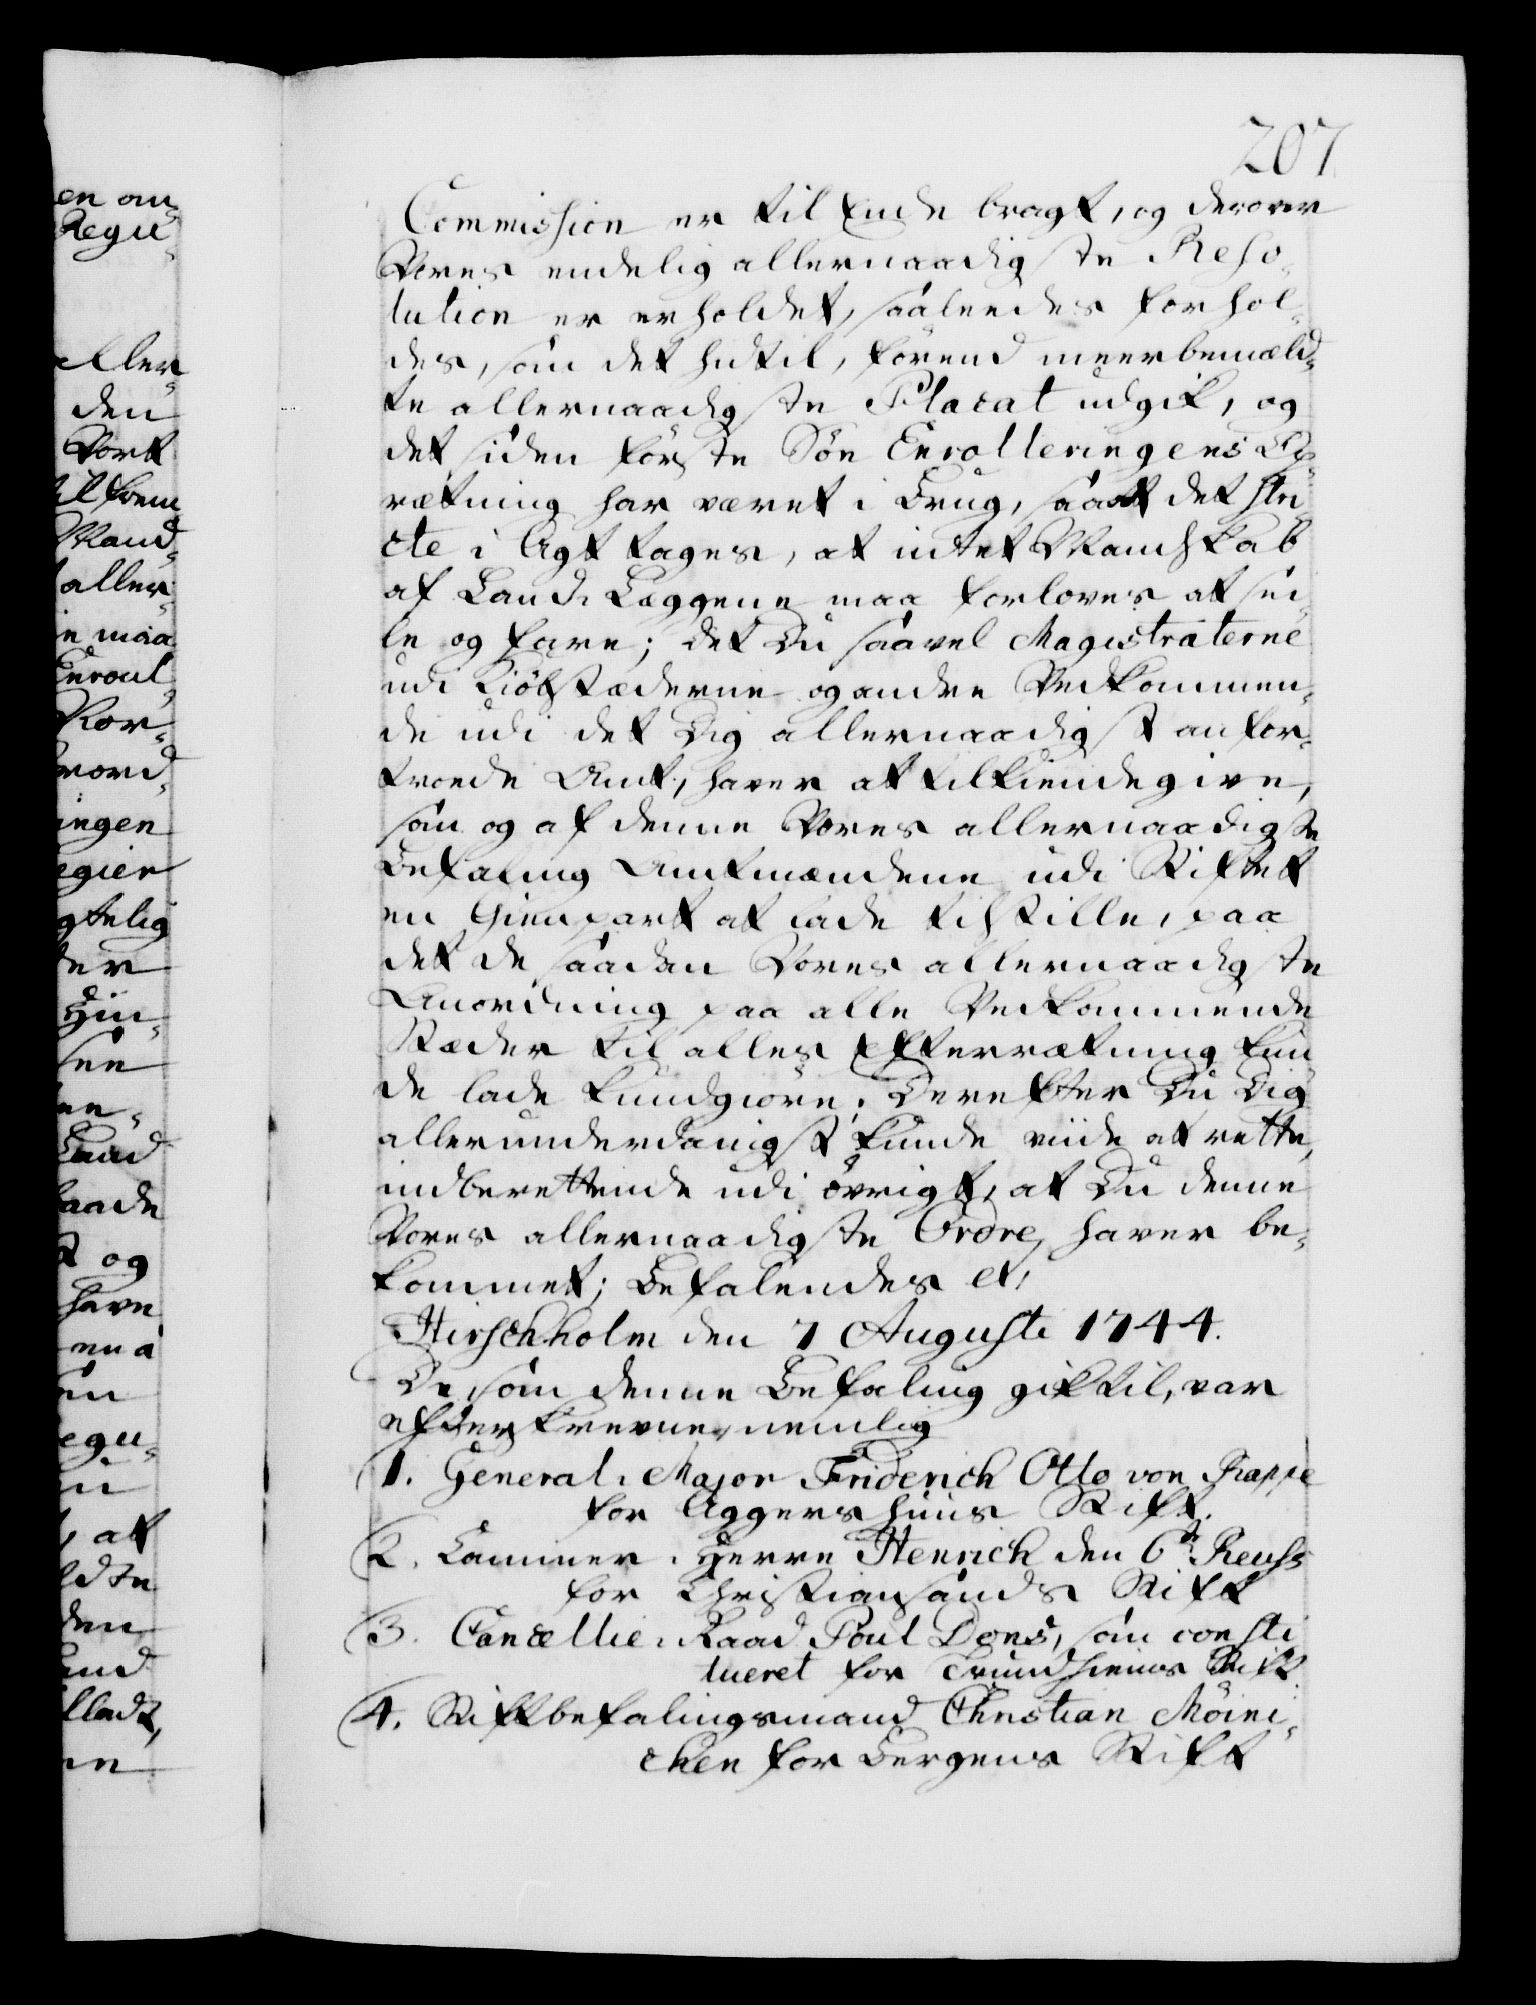 207
Commission er til Ende bragt, og derover
Vores endelig allernaadigste Reso-
lution er erholdet, saaleedes forhol-
des, som det hidtil, førend meerbemeld-
te allernaadigste Placat udgik, og
det siden første Søe Enrolleringens Op-
rætning har været i Brug, saa at det stri-
cte i Agt tages, at intet Mandskab
af Land-Læggene maa forloves at sei-
le og fare; det Du saavel Magistraterne
udi Kiøbstæderne og andre Vedkommen-
de udi det Dig allernaadigst anfor-
troede Amt, haver at tilkiendegive,
som og af denne Vores allernaadigste
Befaling Amtmændene udi Stiftet
en Gienpart at lade tilstille, paa
det de saadan Vores allernaadigste
Anordning paa alle Vedkommende
Stæder til alles Efterrætning kun-
de lade kundgiøre. Derefter Du Dig
allerunderdanigst kunde viide at rette,
indberettende udi øvrigt, at Du denne
Vores allernaadigste Ordre haver be-
kommet; Befalendes et.
Hirschholm den 7 Augusti 1744.
De som denne Befaling gik til, var
efterskrevne, nemlig
1. General-Major Friderich Otto von Rappe
for Aggershuus Stift.
2. Cammer-Herre Henrich den 6te Reuss
for Christiansands Stift
3. Cancellie-Raad Poul Dons, som consti-
tueret for Trundhiems Stift
4. Stiftbefalingsmand Christian Møini-
chen for Bergens Stift
en om
Regu-
Aller-
den
Vort
til frem
Mand-
aller-
e maa
Enroul
For-
ingen
egier
gtelig
der
see
Land
aade
og
have
en
egu-
at
ldte
den